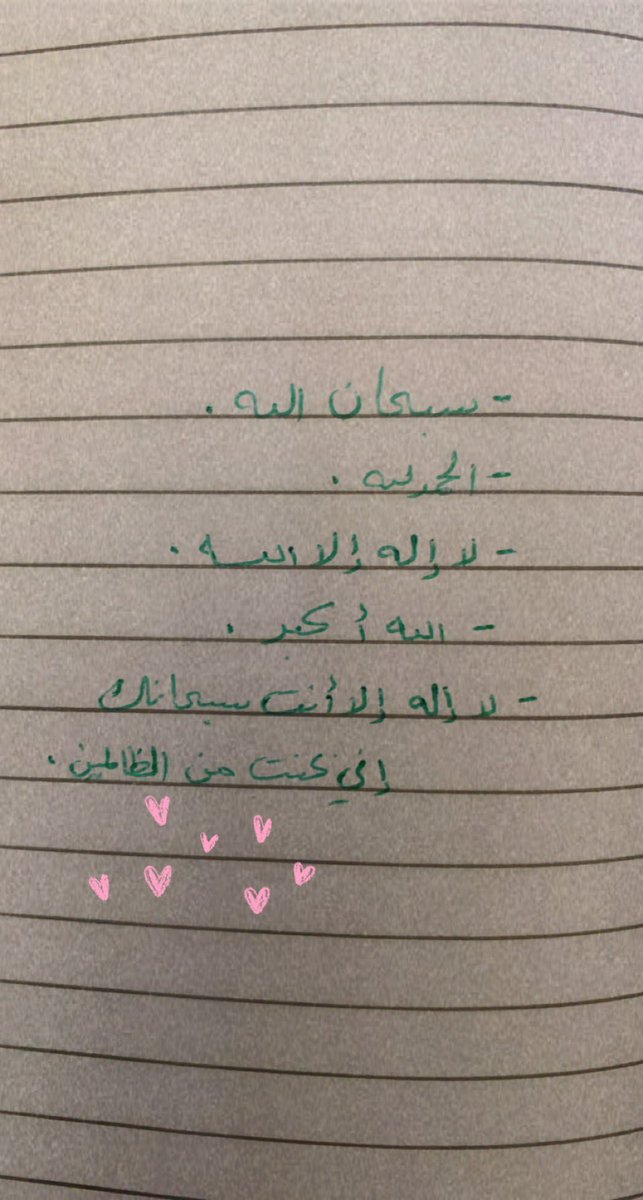 - سبحان الله .
- الحمدلله .
- لا إله إلا الله .
- الله أكبر .
- لا إله إلا أنت سبحانك
إني كنت من الظالمين .